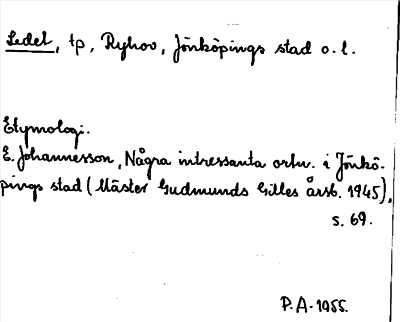 Ledet, tp, Ryhov, Jönköpings stad o. l.
Etymologi.
E. Johannesson, Några intressanta ortn. i Jönkö-
pings stad (Mäster Gudmunds Gilles årsb. 1945),
s. 69.
P.A. 1955.